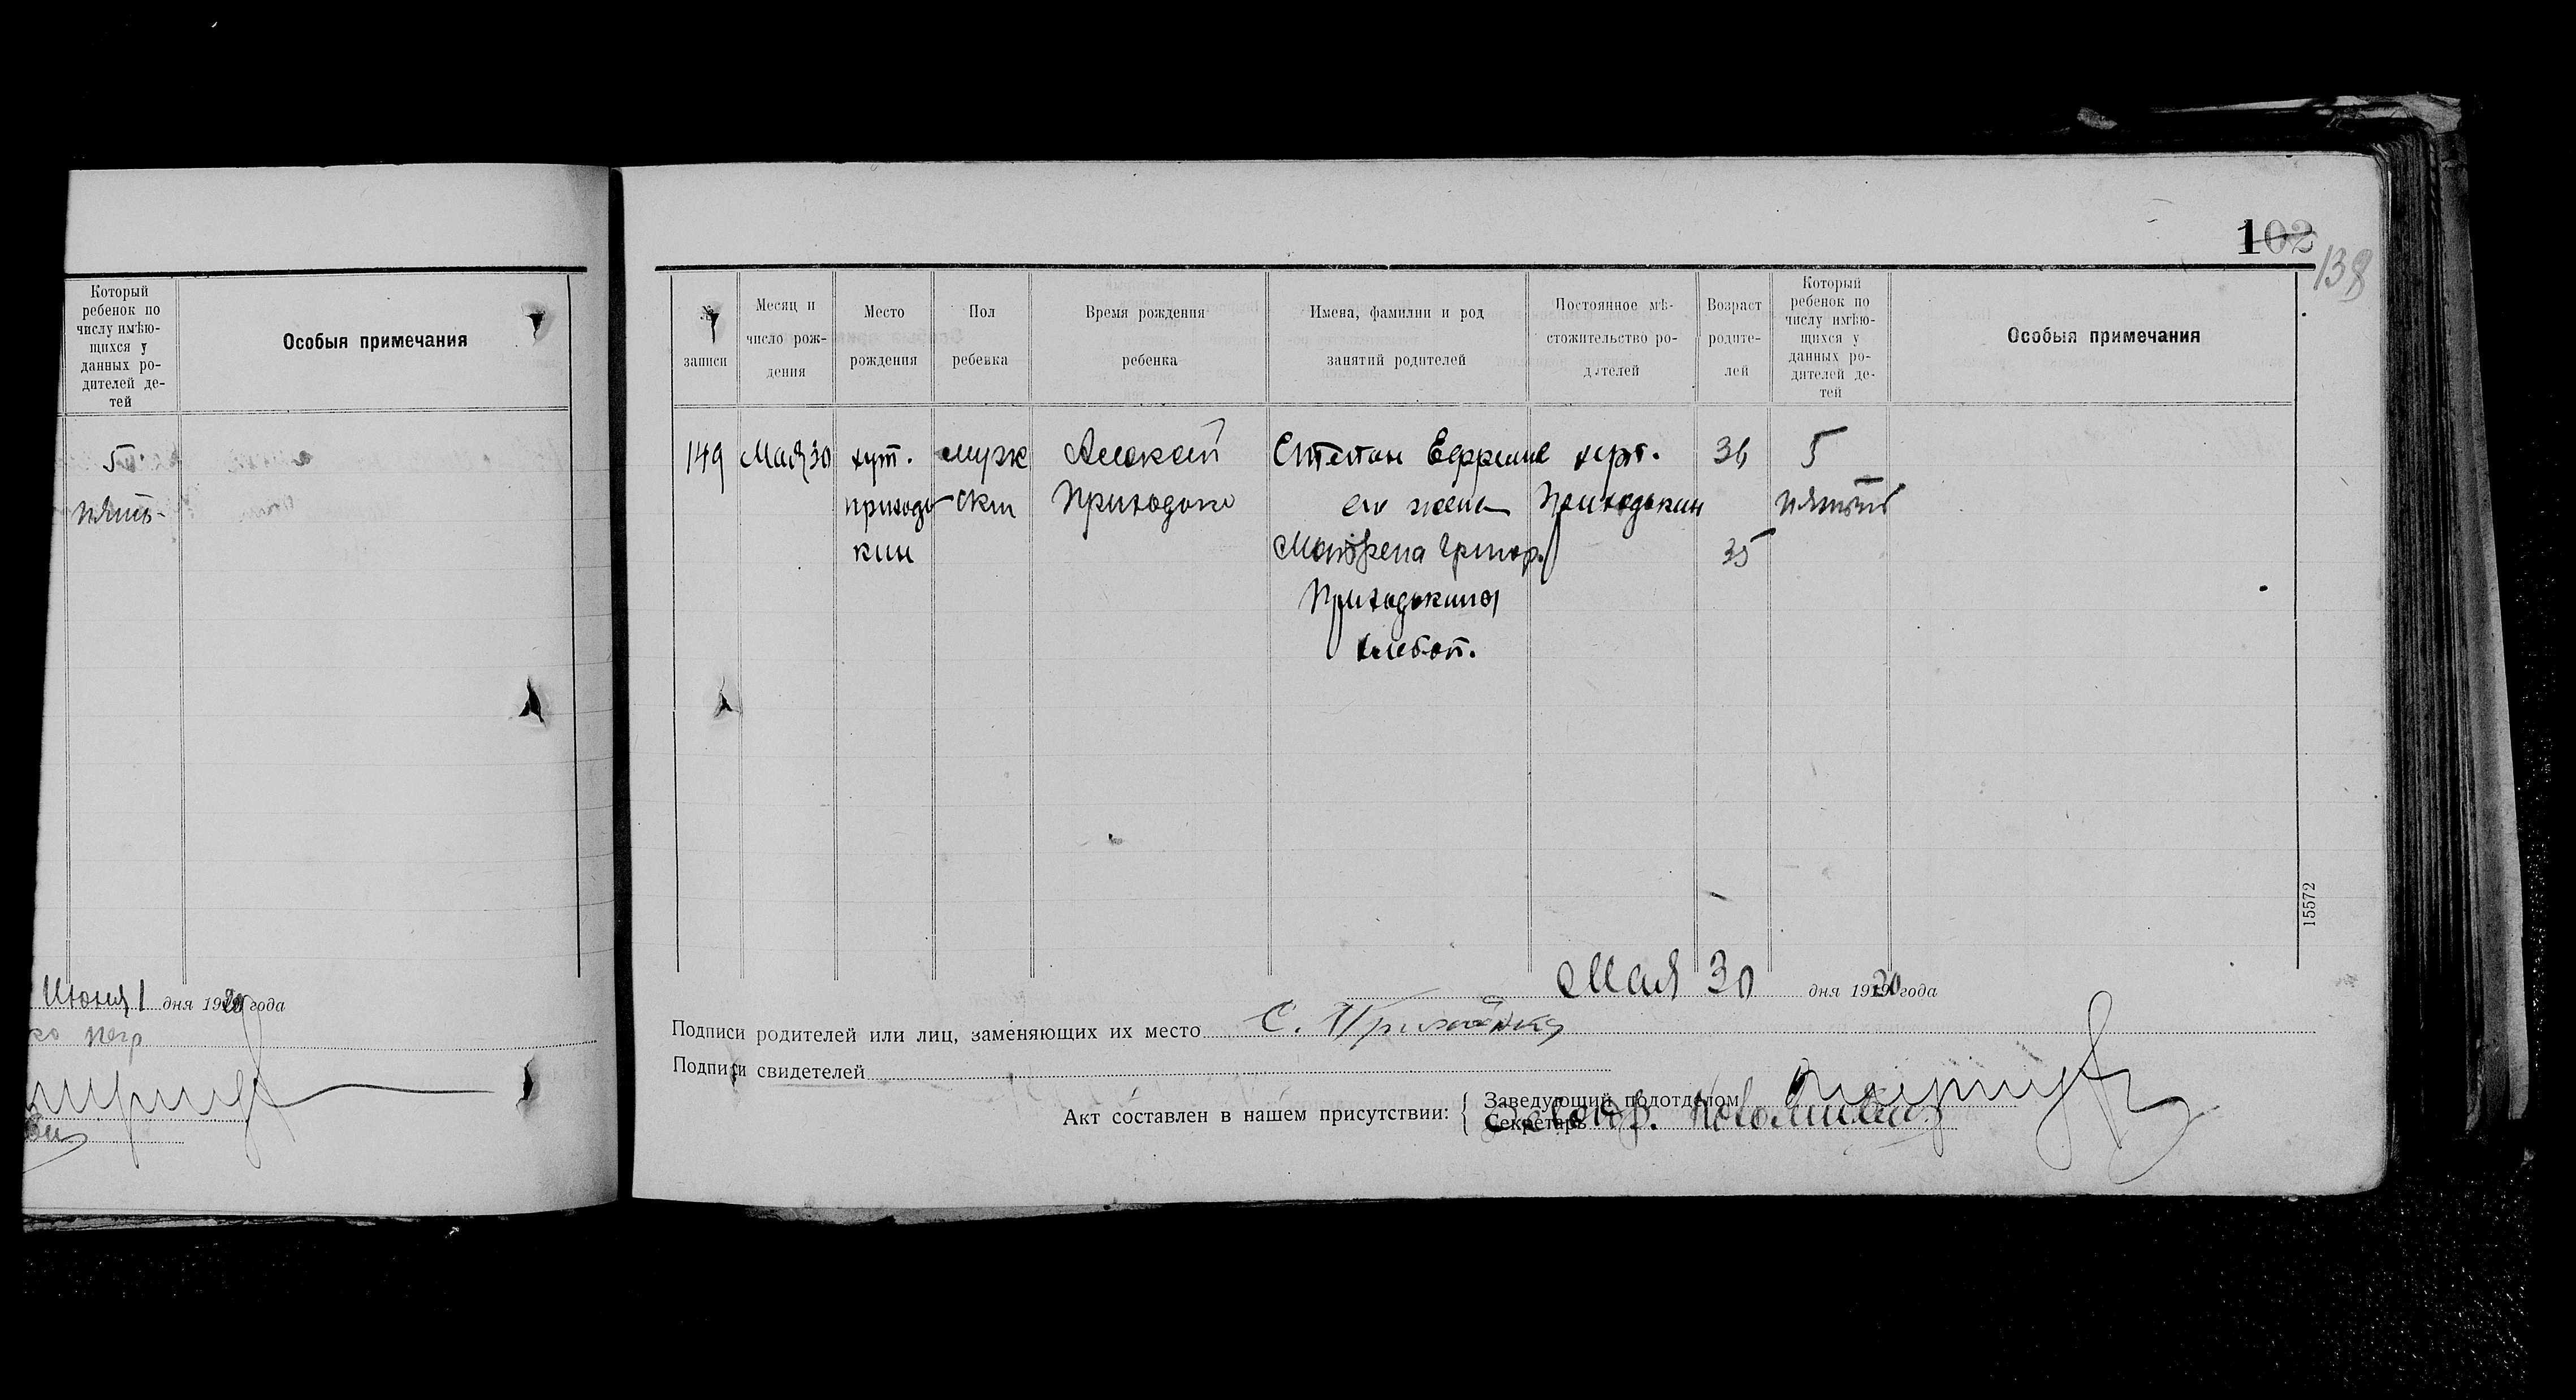 Который
ребенок по
числу имѣю-
щихся у
данных ро-
дителей де-
тей
Особыя примечания
5
пять
Июня 1 дня 1920 года
102
138
№
записи
Месяц и
число рож-
дения
Место
рождения
Пол
ребенка
Время рождения
ребенка
Имена, фамилии и род
занятий родителей
Постоянное мѣ-
стожительство ро-
дителей
Возраст
родите-
лей
Который
ребенок по
числу имѣю-
щихся у
данных ро-
дителей де-
тей
Особыя примечания
149 Мая 30 хут. муж Алексей Степан хут. 36 5
приходь ской Приходько его жена Приходькин
кин Григор. 35
Приходькины
хлебоп.
15572
Мая 30 дня 1920 года
Подписи родителей или лиц, заменяющих их место С. Приходько
Подписи свидетелей
Акт составлен в нашем присутствии:
Заведующий подотделом
Секретарь